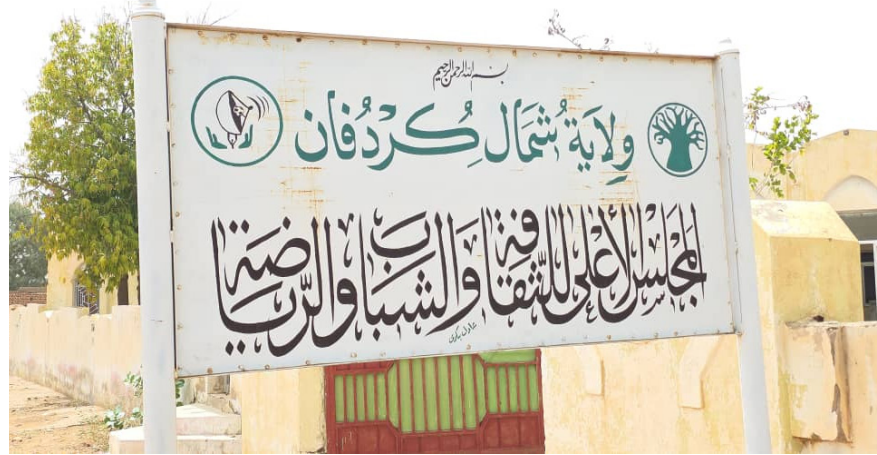 بسم الله الرحمن الرحيم
ولاية شمال كردفان
المجلس الأعلى للثقافة والشباب والرياضة